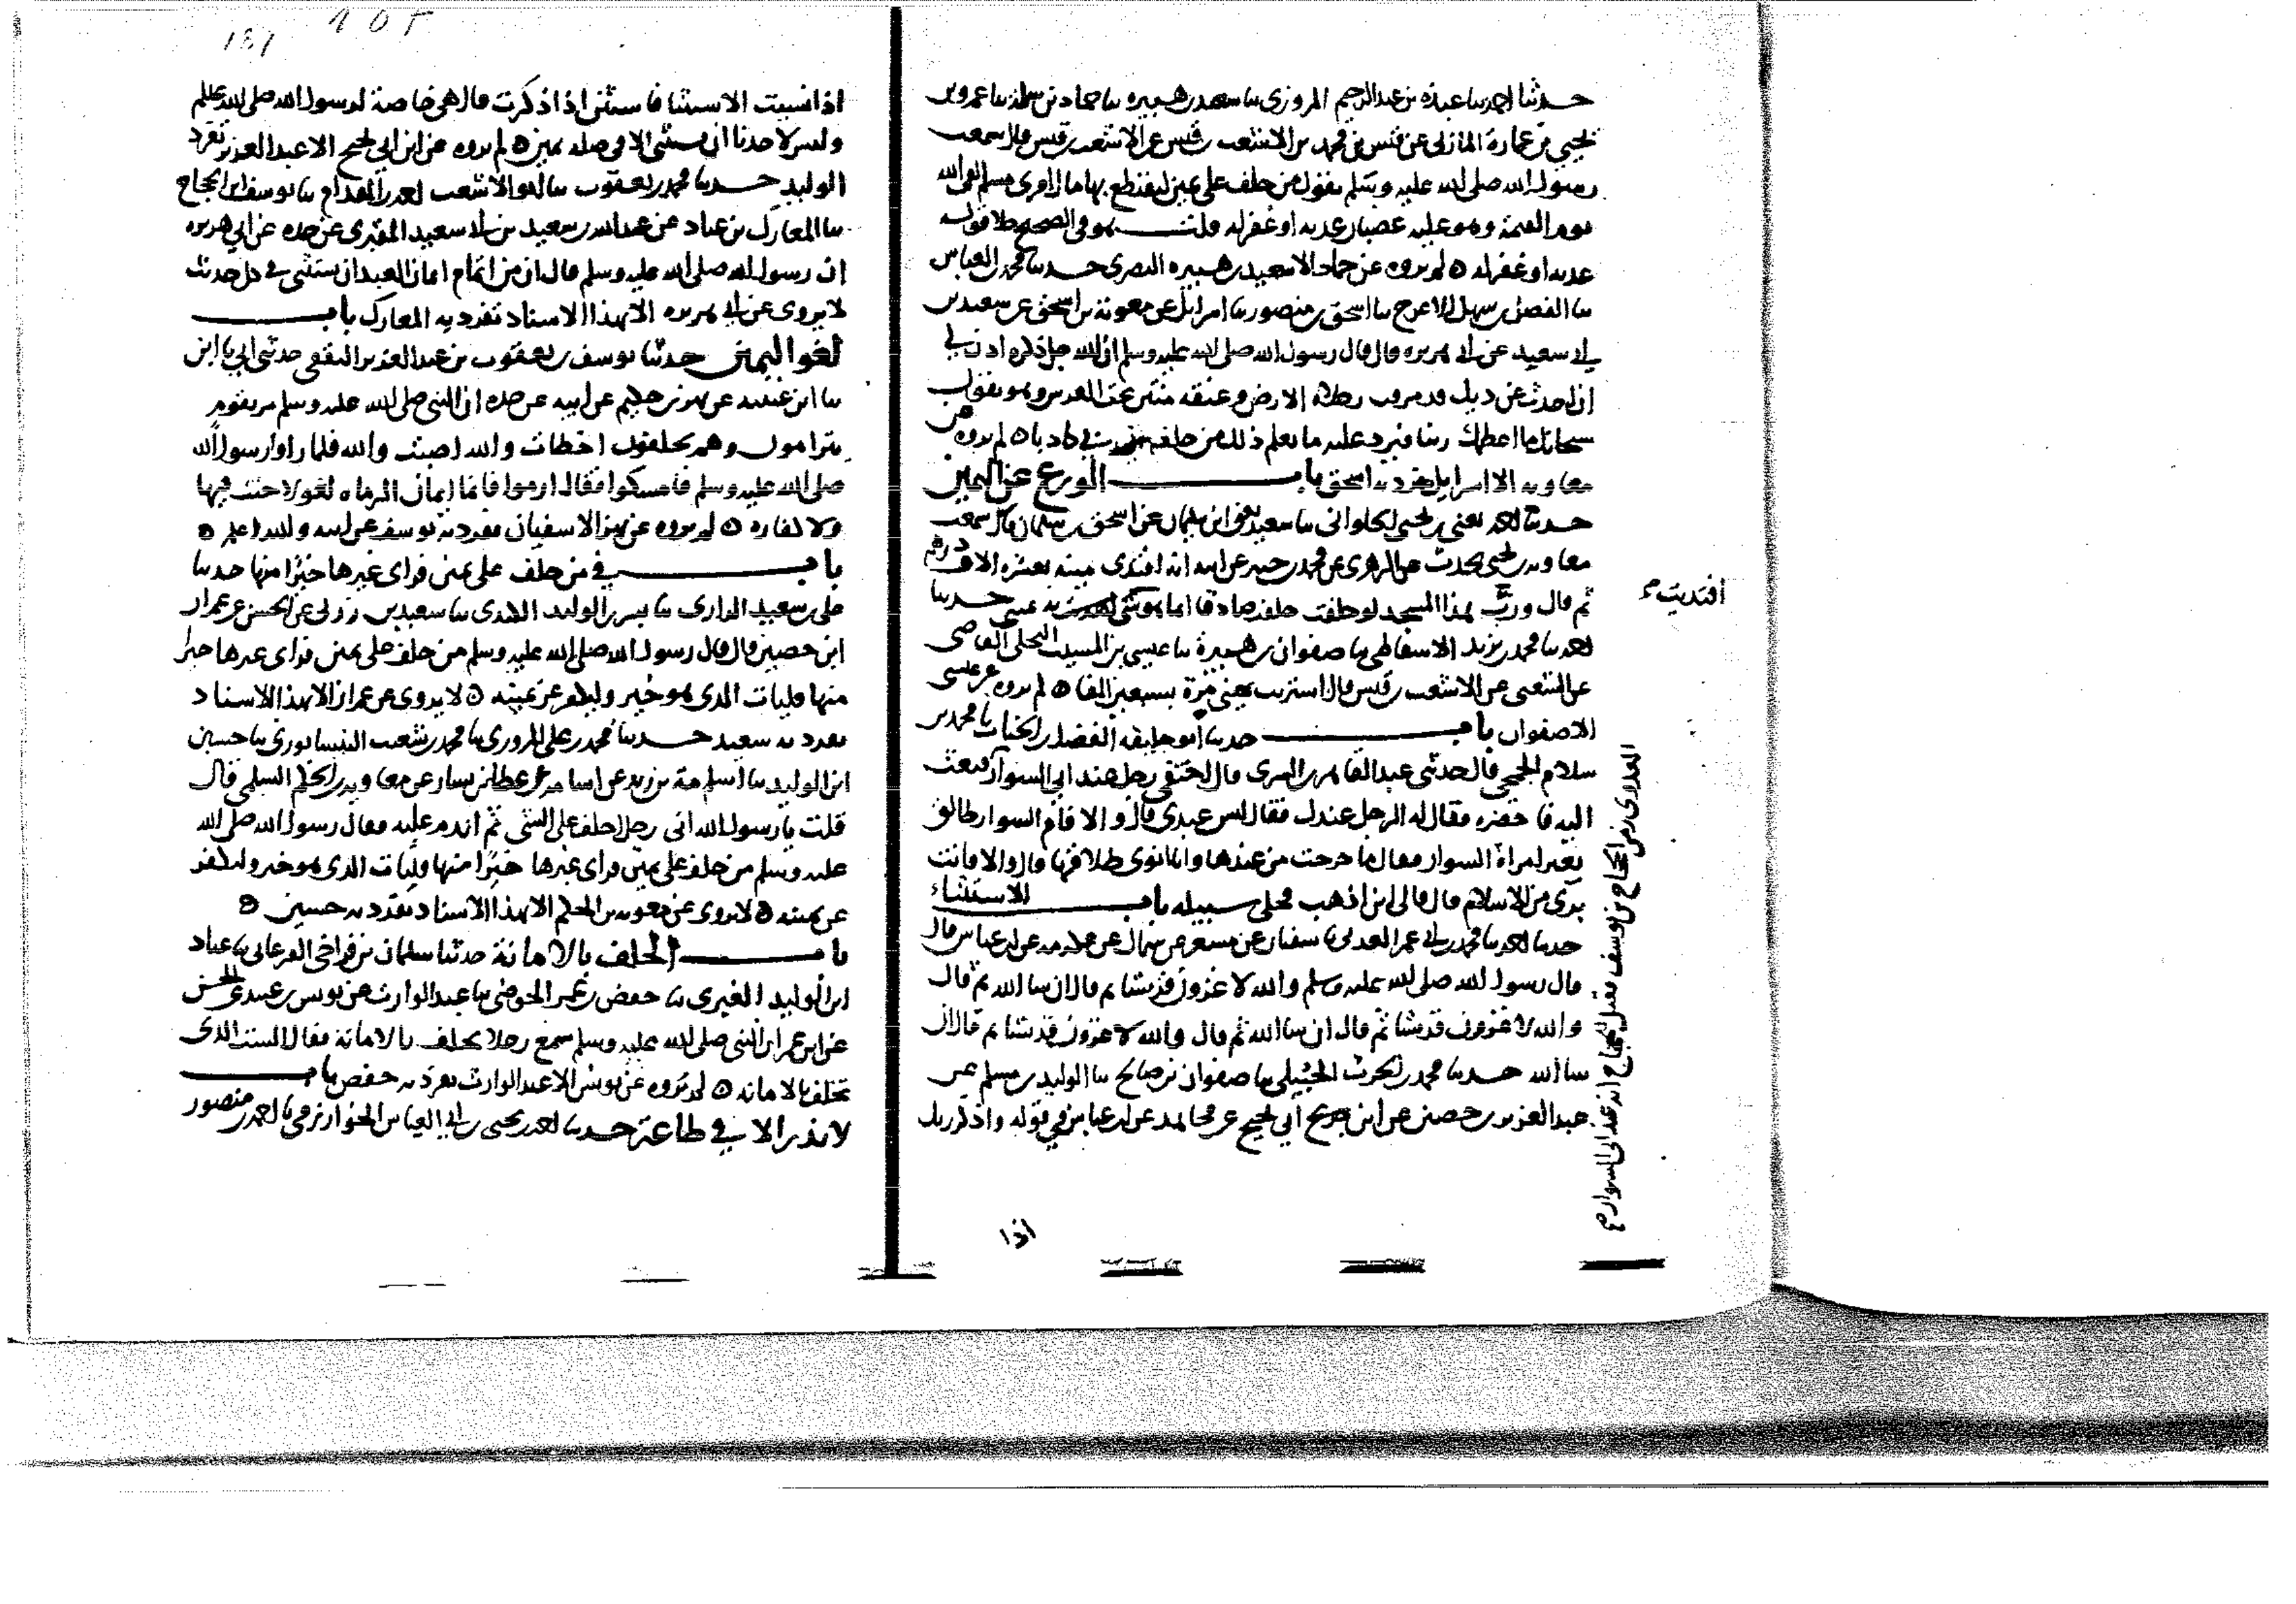 حدثنا احمد نا عبدة بن عبد الرحيم المروزي نا سعيد بن هبيرة نا حماد بن سلمة نا عمرو بن
يحيى بن عمارة المازني عن قيس بن محمد بن الاشعث بن قيس عن الاشعث بن قيس قال سمعت
رسول الله صلى الله عليه وسلم يقول من حلف على يمين ليقتطع بها مال امرئ مسلم لقي الله
يوم القيمة وهو عليه غضبان عذبه او غفر له قلت هو في الصحيح خلا قوله
عذبه او غفر له لم يروه عن حماد الا سعيد بن هبيرة حدثنا محمد بن العباس
نا الفضل بن سهل الاعرج نا اسحق بن منصور نا اسرائيل عن معوية بن اسحق عن سعيد بن
ابي سعيد عن ابي هريرة قال قال رسول الله صلى الله عليه وسلم ان الله جل ذكره اذن لي
ان احدث عن ديك قد مرقت رجلاه الارض وعنقه مثني تحت العرش وهو يقول
سبحانك ما اعظمك ربنا فيرد عليه ما يعلم ذلك من حلف بي كاذبا لم يروه عن
معاوية الا اسرائيل تفرد به اسحق باب الورع عن اليمين
حدثنا احمد يعني بن يحيى الحلواني نا سعيد يعني ابن سليمان عن اسحق بن سليمان قال سمعت
معاوية بن يحيى يحدث عن الزهري عن محمد بن جبير عن ابيه انه افتدى يمينه بعشرة الاف درهم
ثم قال ورب هذا المسجد لو حلفت حلفت صادقا انما هو شي افتديت به يميني حدثنا
افتديت
احمد نا محمد بن يزيد الاسفاطي نا صفوان بن هبيرة نا عيسى بن المسيب البجلي القاضي
عن الشعبي عن الاشعث بن قيس قال اشتريت يميني مرة بسبعين الفا لم يروه عن عيسى
الا صفوان باب حدثنا ابو خليفة الفضل بن الحباب نا محمد بن
سلام الجمحي قال حدثني عبد القاهر بن السري قال اختفى رجل عند ابي السوار فبعث
اليه فاحضره فقال له الرجل عندك فقال ليس عندي قال والا فام السوار طالق
يعني امراة السوار فقال ما خرجت من عندها وانا انوي طلاقها قال والا فانت
بري من الاسلام قال فالى اين اذهب فخلي سبيله باب الاستثناء
حدثنا احمد نا محمد بن ابي عمر العدني نا سفيان عن مسعر عن سماك عن عكرمة عن ابن عباس قال
قال رسول الله صلى الله عليه وسلم والله لاغزون قريشا ثم قال ان شا الله ثم قال
والله لاغزون قريشا ثم قال ان شا الله ثم قال والله لاغزون قريشا ثم قال ان
شا الله حدثنا محمد بن الحرث الجبيلي نا صفوان بن صالح نا الوليد بن مسلم عن
عبد العزيز بن حصين عن ابن ابي نجيح عن مجاهد عن ابن عباس في قوله واذكر ربك
اذا
اذا نسيت الاستثنا فاستثن اذا ذكرت قال هي خاصة لرسول الله صلى الله عليه وسلم
وليس لاحدنا ان يستثني الا في صلة يمين لم يروه عن ابن ابي نجيح الا عبد العزيز تفرد
الوليد حدثنا محمد بن يعقوب نا ابو الاشعث احمد بن المقدام نا يوسف بن الحجاج
نا المعارك بن عباد عن عبد الله بن سعيد بن ابي سعيد المقبري عن جده عن ابي هريرة
ان رسول الله صلى الله عليه وسلم قال ان من اتمام ايمان العبد ان يستثني في كل حديث
لا يروى عن ابي هريرة الا بهذا الاسناد تفرد به المعارك باب
لغو اليمين حدثنا يوسف بن يعقوب بن عبد العزيز الثقفي حدثني ابي نا ابن
نا ابن عيينة عن بهز بن حكيم عن ابيه عن جده ان النبي صلى الله عليه وسلم مر بقوم
يترامون وهم يحلفون اخطات والله اصبت والله فلما راوا رسول الله
صلى الله عليه وسلم فامسكوا فقال ارموا فانما ايمان الرماة لغو لا حنث فيها
ولا كفارة لم يروه عن بهز الا سفيان تفرد به يوسف عن ابيه والله اعلم
باب في من حلف على يمين فراى غيرها خيرا منها حدثنا
علي بن سعيد الرازي نا بشر بن الوليد الكندي نا سعيد بن زربي عن الحسن عن عمران
ابن حصين قال قال رسول الله صلى الله عليه وسلم من حلف على يمين فراى غيرها خيرا
منها فليات الذي هو خير وليكفر عن يمينه لا يروى عن عمران الا بهذا الاسناد
تفرد به سعيد حدثنا محمد بن علي المروزي نا محمد بن شعيب النيسابوري نا حسين
ابن الوليد نا اسلمة بن زيد عن اسامة عن عطا بن يسار عن معاوية بن الحكم السلمي قال
قلت يا رسول الله اني رجل احلف على الشي ثم اندم عليه فقال رسول الله صلى الله
عليه وسلم من حلف على يمين فراى غيرها خيرا منها فليات الذي هو خير وليكفر
عن يمينه لا يروى عن معوية بن الحكم الا بهذا الاسناد تفرد به حسين
باب الحلف بالامانة حدثنا سلمان بن فرافي الفرغاني نا عباد
ابن الوليد الغبري نا حفص بن عمر الحوضي نا عبد الوارث عن يونس بن عبيد عن الحسن
عن ابن عمر ان النبي صلى الله عليه وسلم سمع رجلا يحلف بالامانة فقال الست الذي
تحلف بالامانة لم يروه عن يونس الا عبد الوارث تفرد به حفص باب
لا نذر الا في طاعة حدثنا احمد بن يحيى بن ابي العباس الخوارزمي نا احمد بن منصور